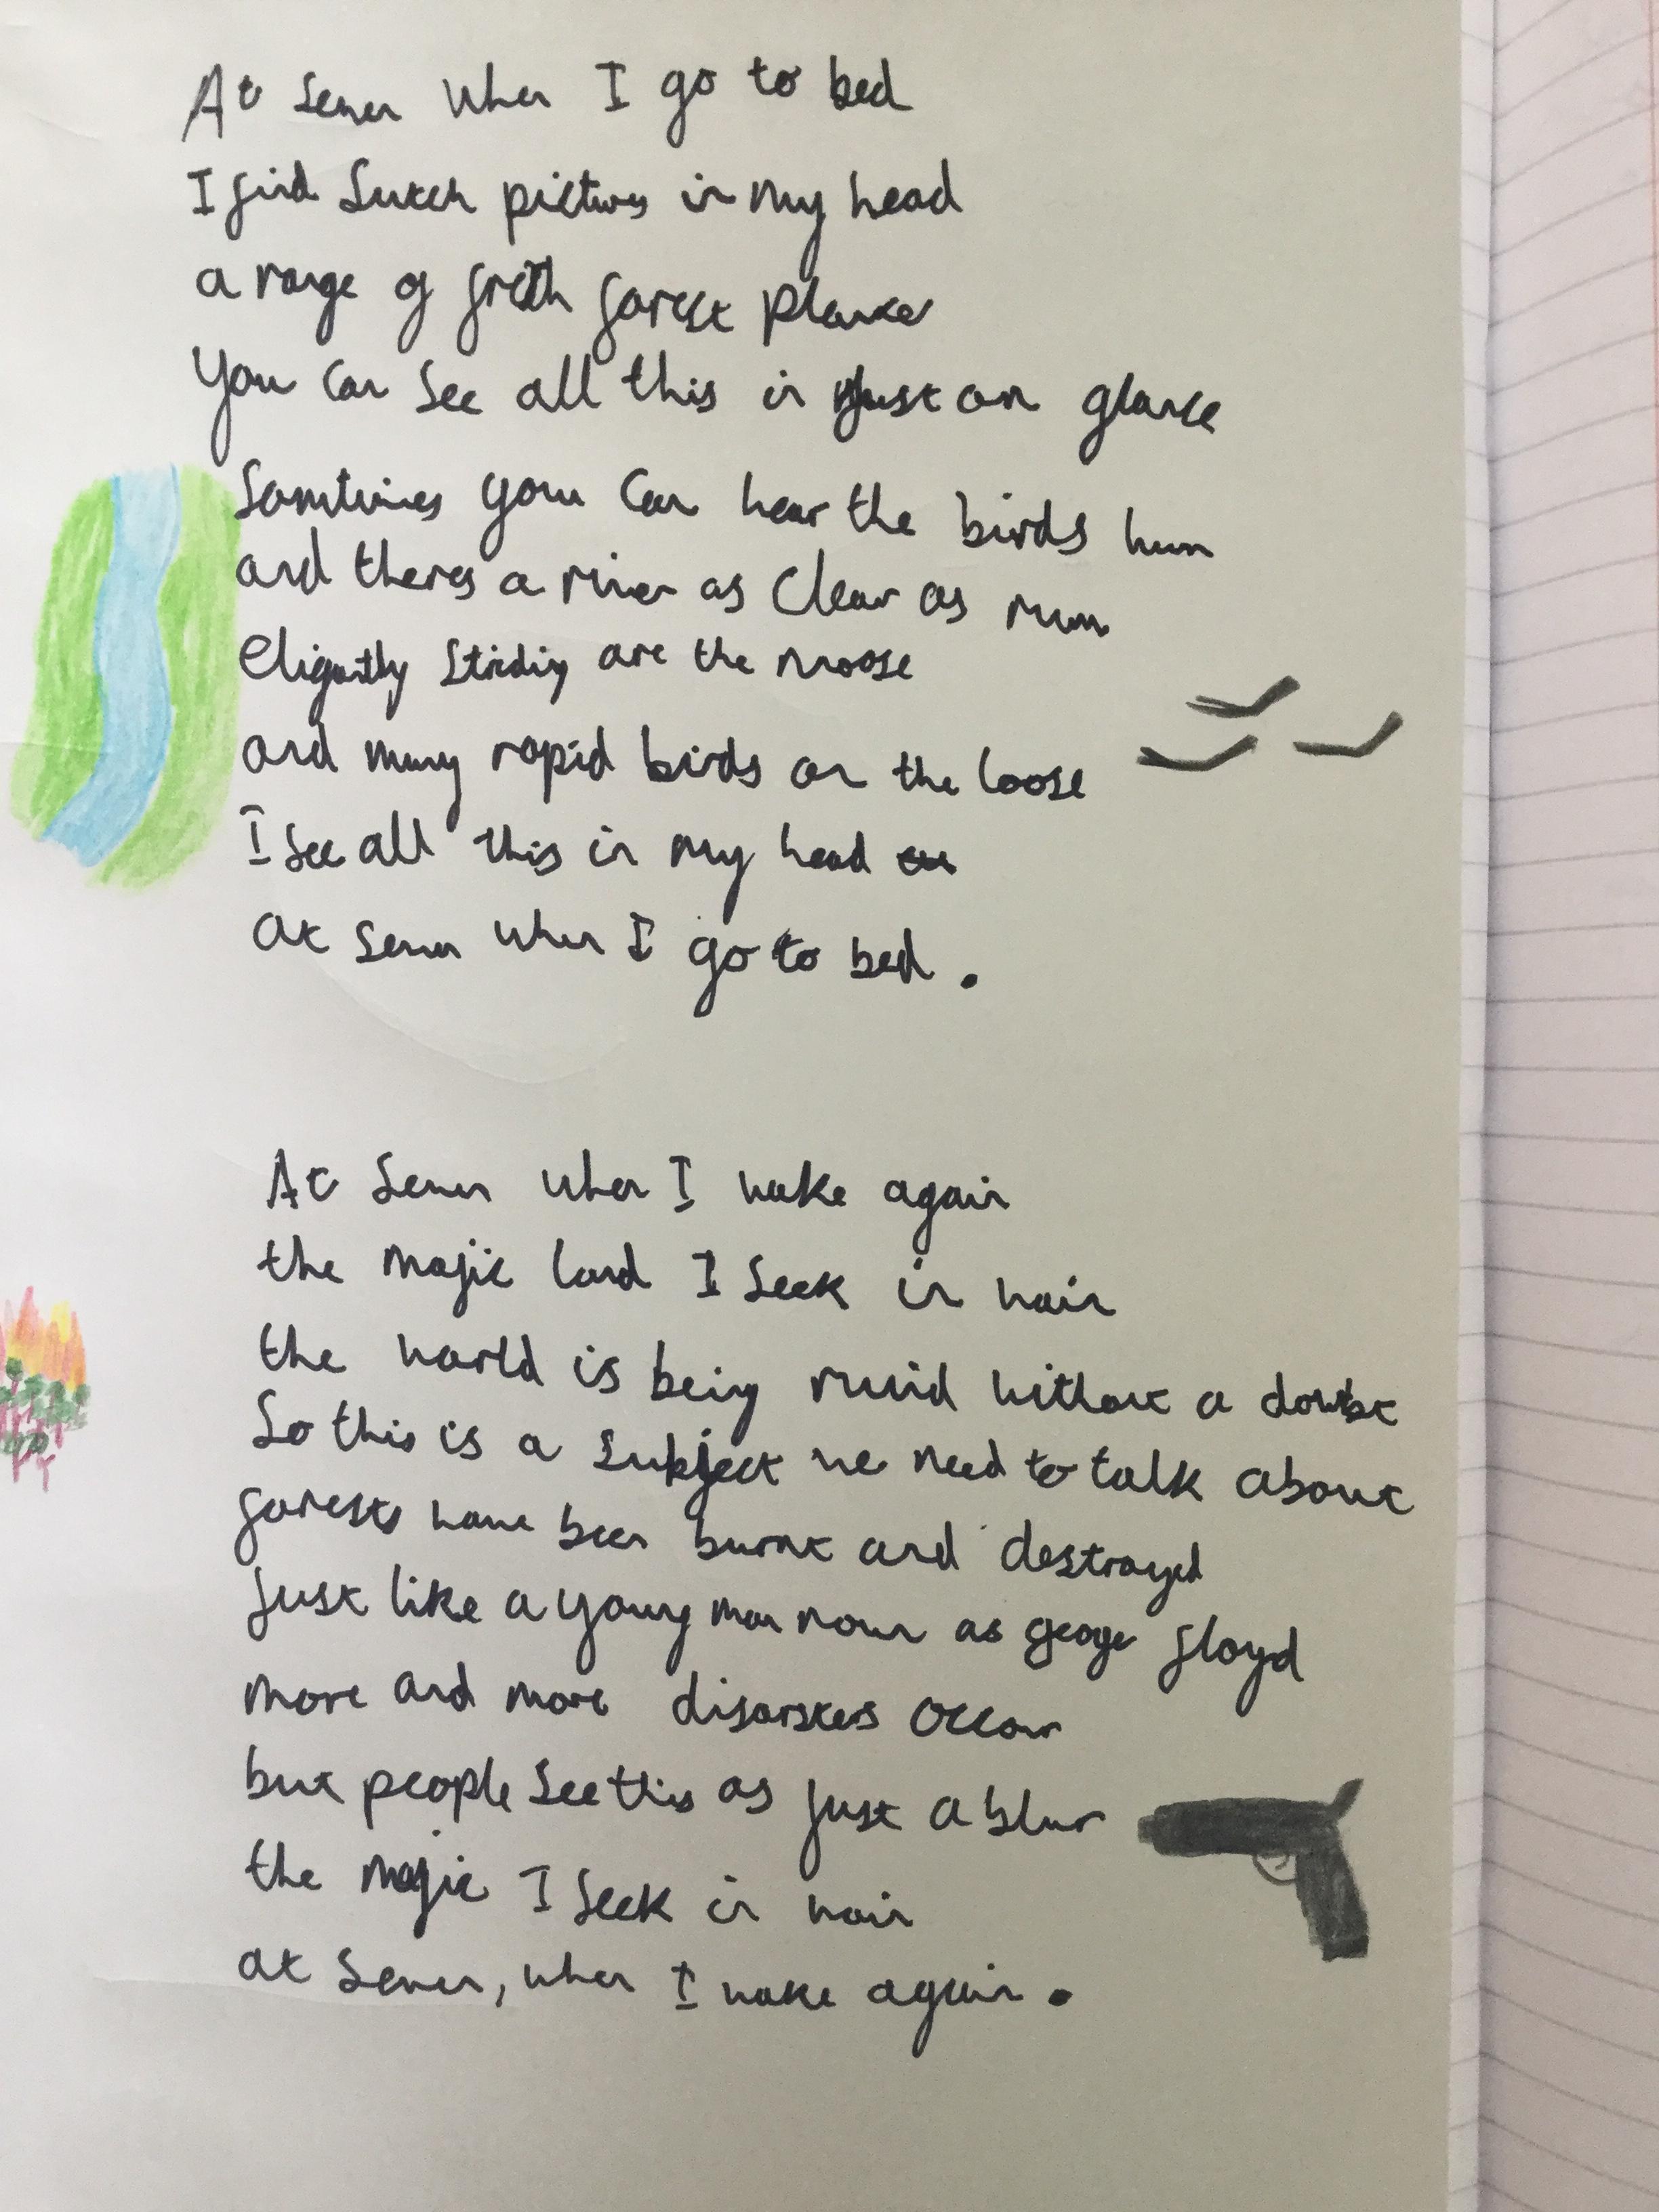 At Seven when I go to bed
I find Sutch pictures in my head
a range of fresh forest plants
You can See all this in just on glance
Somtimes you can hear the birds hum
and theres a river as Clear as rum
Eligantly Striding are the moose
and many rapid birds on the loose
I See all this in my head
at Seven when I go to bed.
At Seven when I wake again
the majic land I Seek in vain
the world is being ruind without a doubt
So this is a Subject we need to talk about
forests have been burnt and destroyed
Just like a young man nown as geoge floyd
more and more disarsters occour
but people See this as just a blur
the majic I Seek in vain
at Seven, when I wake again.